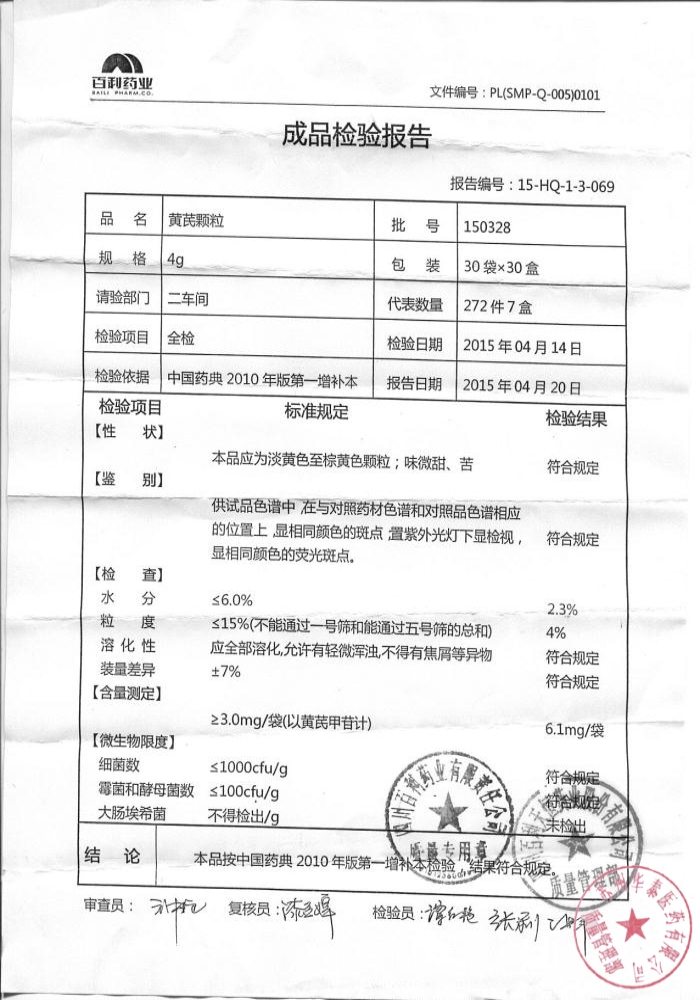 百利药业
BAILI PHARM.CO.
文件编号：PL(SMP-Q-005)0101
成品检验报告
报告编号：15-HQ-1-3-069
品 名 黄芪颗粒 批 号 150328
规 格 4g 包 装 30袋×30盒
请验部门 二车间 代表数量 272件7盒
检验项目 全检 检验日期 2015年04月14日
检验依据 中国药典2010年版第一增补本 报告日期 2015年04月20日
检验项目 标准规定 检验结果
【性 状】
本品应为淡黄色至棕黄色颗粒；味微甜、苦 符合规定
【鉴 别】
供试品色谱中,在与对照药材色谱和对照品色谱相应
的位置上,显相同颜色的斑点;置紫外光灯下显检视， 符合规定
显相同颜色的荧光斑点。
【检 查】
水 分 ≤6.0% 2.3%
粒 度 ≤15%(不能通过一号筛和能通过五号筛的总和) 4%
溶 化 性 应全部溶化,允许有轻微浑浊,不得有焦屑等异物 符合规定
装量差异 ±7% 符合规定
【含量测定】
≥3.0mg/袋(以黄芪甲苷计) 6.1mg/袋
【微生物限度】
细菌数 ≤1000cfu/g 符合规定
霉菌和酵母菌数 ≤100cfu/g 符合规定
大肠埃希菌 不得检出/g 未检出
结 论 本品按中国药典2010年版第一增补本检验，结果符合规定。
四川百利药业有限责任公司
质量专用章
质量管理部
华泰医药有限公司
质量管理部
审查员： 复核员： 检验员：